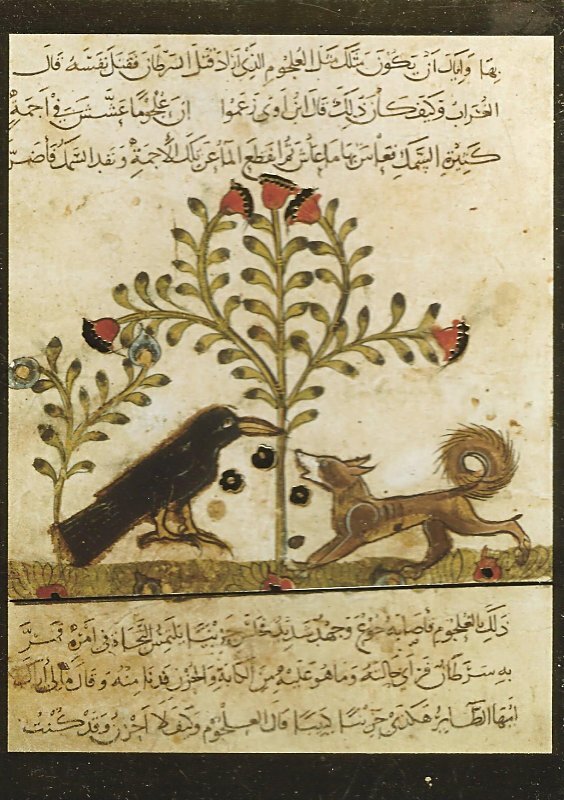 بها واياك ان يكون مثلك مثل العلجوم الذي اراد قتل السرطان فقتل نفسه قال
الغراب وكيف كان ذلك قال ابن اوى زعموا ان علجوما عشش في اجمة
كثيرة السمك فعاش بها ما عاش ثم انقطع الماء عن تلك الاجمة ونفد السمك فأضر
ذلك بالعلجوم فأصابه جوع وجهد شديد فجلس حزينا يلتمس النجاة في امره فمر
به سرطان فرأى حالته وما هو عليه من الكآبة والحزن فدنا منه وقال مالي أراك
ايها الطائر هكذى حزينا كئيبا قال العلجوم وكيف لا احزن وقد كنت